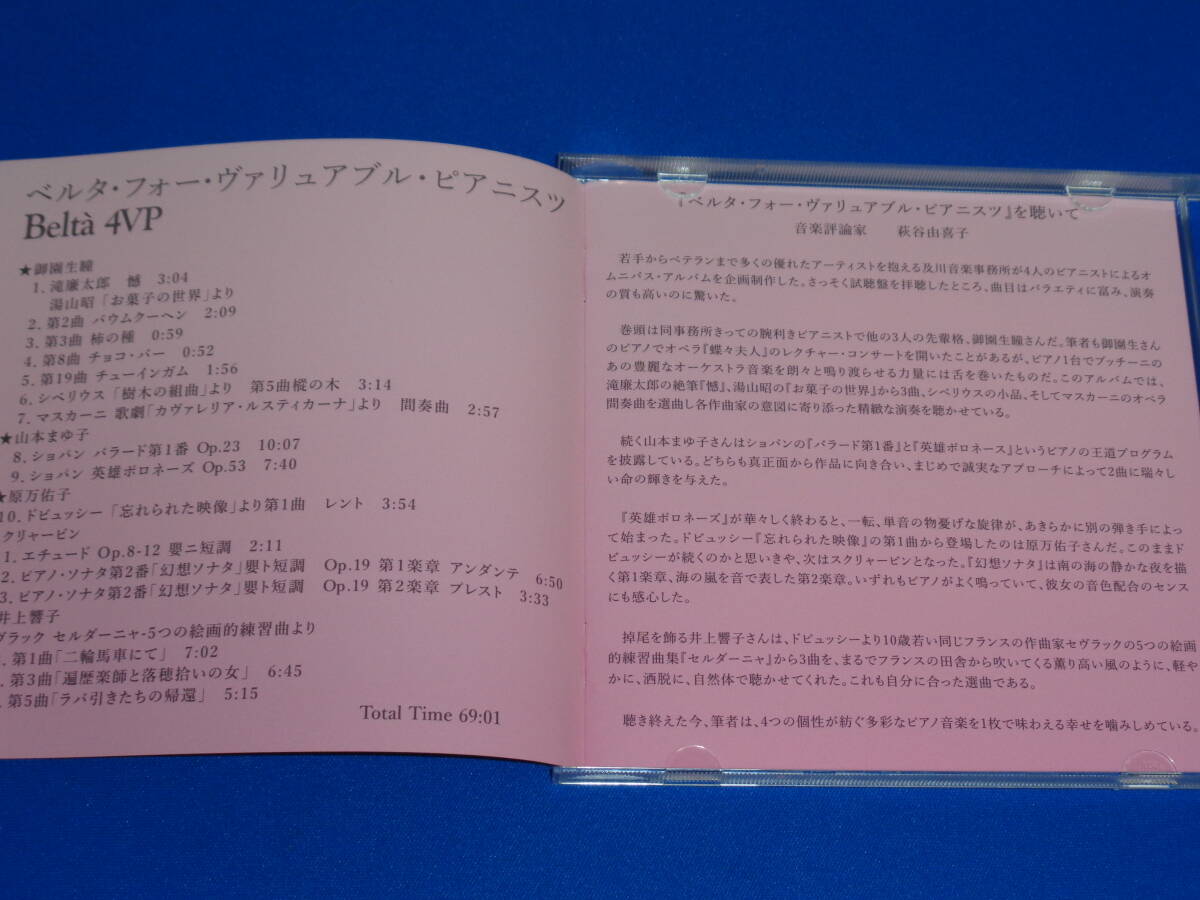 ベルタ・フォー・ヴァリュアブル・ピアニスツ
Beltà 4VP
★御園生瞳
1. 滝廉太郎 憾 3:04
湯山昭「お菓子の世界」より
2. 第2曲 バウムクーヘン 2:09
3. 第3曲 柿の種 0:59
4. 第8曲 チョコ・バー 0:52
5. 第19曲 チューインガム 1:56
6. シベリウス 「樹木の組曲」より 第5曲樅の木 3:14
7. マスカーニ 歌劇「カヴァレリア・ルスティカーナ」より 間奏曲 2:57
★山本まゆ子
8. ショパン バラード第1番 Op.23 10:07
9. ショパン 英雄ポロネーズ Op.53 7:40
★原万佑子
10. ドビュッシー 「忘れられた映像」より第1曲 レント 3:54
クリャービン
1. エチュード Op.8-12 嬰ニ短調 2:11
2. ピアノ・ソナタ第2番「幻想ソナタ」嬰ト短調 Op.19 第1楽章 アンダンテ 6:50
3. ピアノ・ソナタ第2番「幻想ソナタ」嬰ト短調 Op.19 第2楽章 プレスト 3:33
井上響子
ヴラック セルダーニャ-5つの絵画的練習曲より
. 第1曲「二輪馬車にて」 7:02
. 第3曲「遍歴楽師と落穂拾いの女」 6:45
. 第5曲「ラバ引きたちの帰還」 5:15
Total Time 69:01
『ベルタ・フォー・ヴァリュアブル・ピアニスツ』を聴いて
音楽評論家 萩谷由喜子
若手からベテランまで多くの優れたアーティストを抱える及川音楽事務所が4人のピアニストによるオ
ムニバス・アルバムを企画制作した。さっそく試聴盤を拝聴したところ、曲目はバラエティに富み、演奏
の質も高いのに驚いた。
巻頭は同事務所きっての腕利きピアニストで他の3人の先輩格、御園生瞳さんだ。筆者も御園生さん
のピアノでオペラ『蝶々夫人』のレクチャー・コンサートを開いたことがあるが、ピアノ1台でプッチーニの
あの豊麗なオーケストラ音楽を朗々と鳴り渡らせる力量には舌を巻いたものだ。このアルバムでは、
滝廉太郎の絶筆『憾』、湯山昭の『お菓子の世界』から3曲、シベリウスの小品、そしてマスカーニのオペラ
間奏曲を選曲し各作曲家の意図に寄り添った精緻な演奏を聴かせている。
続く山本まゆ子さんはショパンの『バラード第1番』と『英雄ポロネース』というピアノの王道プログラム
を披露している。どちらも真正面から作品に向き合い、まじめで誠実なアプローチによって2曲に瑞々し
い命の輝きを与えた。
『英雄ポロネーズ』が華々しく終わると、一転、単音の物憂げな旋律が、あきらかに別の弾き手によっ
て始まった。ドビュッシー『忘れられた映像』の第1曲から登場したのは原万佑子さんだ。このままド
ビュッシーが続くのかと思いきや、次はスクリャービンとなった。『幻想ソナタ』は南の海の静かな夜を描
く第1楽章、海の嵐を音で表した第2楽章。いずれもピアノがよく鳴っていて、彼女の音色配合のセンス
にも感心した。
掉尾を飾る井上響子さんは、ドビュッシーより10歳若い同じフランスの作曲家セヴラックの5つの絵画
的練習曲集『セルダーニャ』から3曲を、まるでフランスの田舎から吹いてくる薫り高い風のように、軽や
かに、洒脱に、自然体で聴かせてくれた。これも自分に合った選曲である。
聴き終えた今、筆者は、4つの個性が紡ぐ多彩なピアノ音楽を1枚で味わえる幸せを噛みしめている。